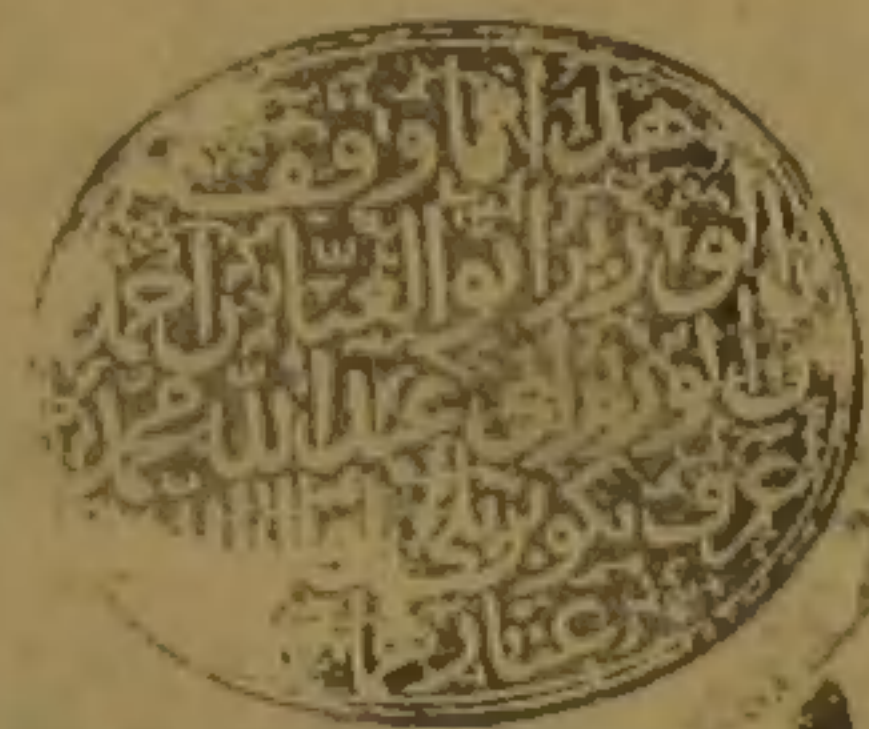 هذا ما وقفه
الوزير ابو العباس احمد
بن الوزير ابي عبد الله محمد
عرف بكوبريلي
عثارهما